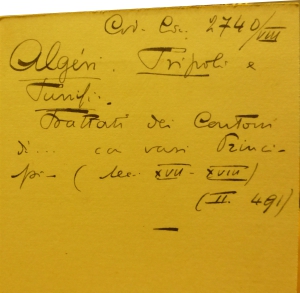 Cod. Cic. 2740/VIII
Algeri. Tripoli e
Tunisi.
Trattati dei Cantoni
di... ca vari Princi-
pi - (sec. XVII - XVIII)
(II. 491)